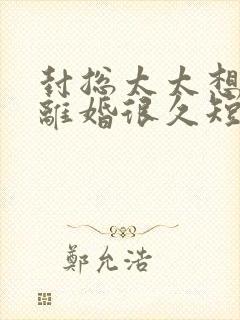 封总太太想
離婚很久短
鄭允浩